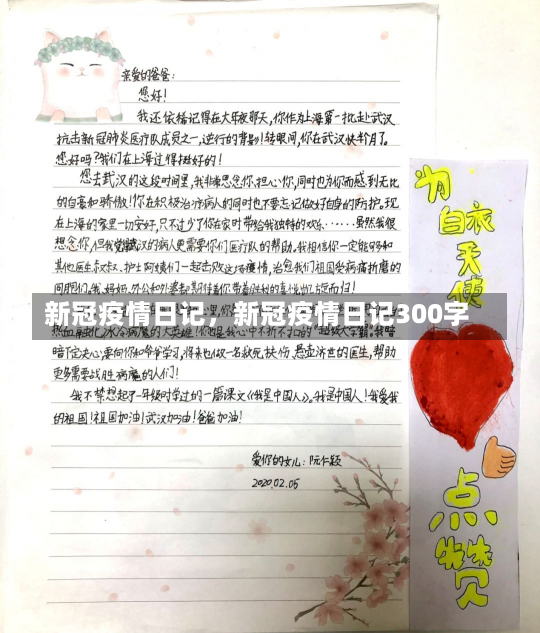 亲爱的爸爸：
您好！
我还依稀记得在大年夜那天，你作为上海第一批赴武汉
抗击新冠肺炎医疗队成员之一，逆行的背影！转眼间，你在武汉快半月了。
您好吗？我们在上海过得挺好的！
您去武汉的这段时间里，我非常思念你，担心你，同时也为你而感到无比
的自豪和骄傲！你在积极治疗病人的同时也不要忘记做好自身的防护。现
在上海的家里一切安好，只不过少了你在家时带给我独特的欢乐……虽然我很
想念你，但我觉武汉的病人更需要你们医疗队的帮助。我相信你一定能够和
其他医生叔叔、护士阿姨们一起击败这场疫情，治愈我们祖国受病痛折磨的
同胞们。我、妈妈、外公和外婆都期待着你
新冠疫情日记，新冠疫情日记300字
暗下定决心，要向你和爷爷学习，将来也做一名救死扶伤、悬壶济世的医生，帮助
更多需要战胜病魔的人们！
我不禁想起了一年级时学过的一篇课文《我是中国人》。我是中国人！我爱我
的祖国！祖国加油！武汉加油！爸爸加油！
爱你的女儿：阮仁颖
2020.02.05
为
白衣
天使
点
赞